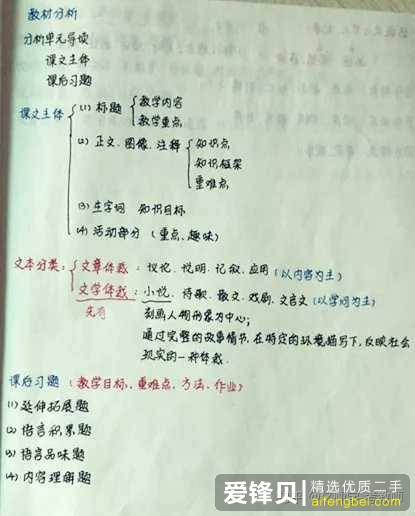 教材分析
分析单元导读
课文主体
课后习题
课文主体
(1) 标题
教学内容
教学重点
(2) 正文、图像、注释
知识点
知识框架
重难点
(3) 生字词 知识目标
(4) 活动部分 (重点、趣味)
文本分类:
文章体裁: 议论、说明、记叙、应用 (以内容为主)
文学体裁: 小说、诗歌、散文、戏剧、文言文 (以学问为主)
先有
刻画人物形象为中心;
通过完整的故事情节,在特定的环境描写下,反映社会
现实的一种体裁.
课后习题 (教学目标、重难点、方法、作业)
(1) 延伸拓展题
(2) 语言积累题
(3) 语言品味题
(4) 内容理解题
爱锋贝
精选优质二手
aifengbei.com